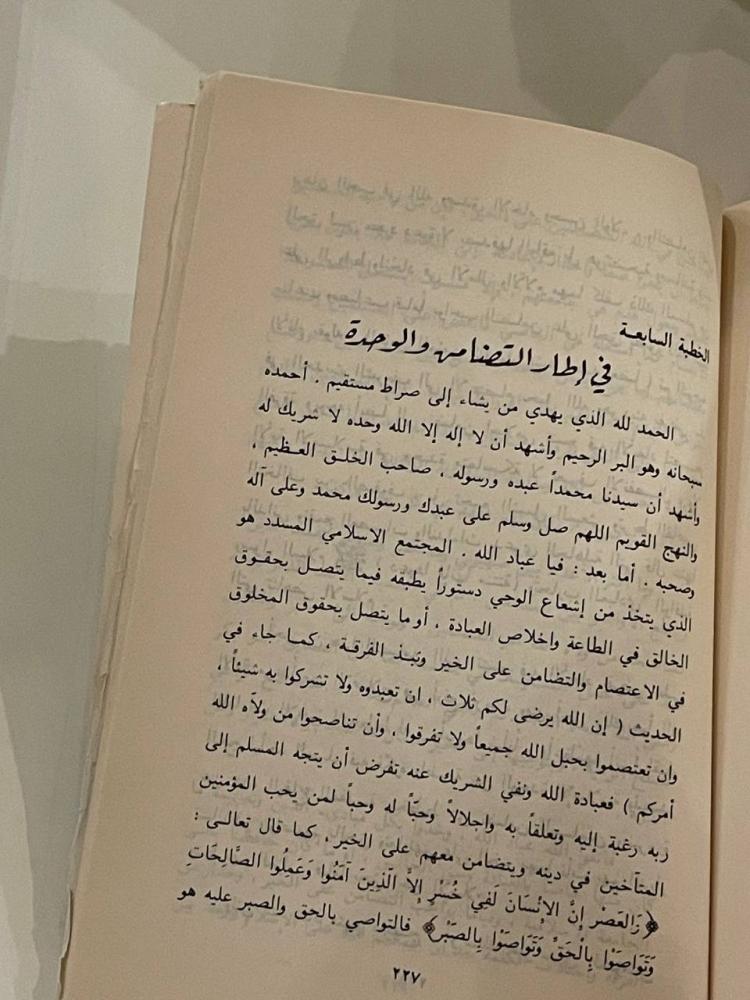 الخطبة السابعة
في إطار التضامن والوحدة
الحمد لله الذي يهدي من يشاء إلى صراط مستقيم . أحمده
سبحانه وهو البر الرحيم وأشهد أن لا إله إلا الله وحده لا شريك له
وأشهد أن سيدنا محمداً عبده ورسوله ، صاحب الخلق العظيم ،
والنهج القويم اللهم صل وسلم على عبدك ورسولك محمد وعلى آله
وصحبه . أما بعد : فيا عباد الله . المجتمع الاسلامي المسدد هو
الذي يتخذ من إشعاع الوحي دستوراً يطبقه فيما يتصل بحقوق
الخالق في الطاعة واخلاص العبادة ، أو ما يتصل بحقوق المخلوق
في الاعتصام والتضامن على الخير ونبذ الفرقة ، كما جاء في
الحديث ( إن الله يرضى لكم ثلاث ، ان تعبدوه ولا تشركوا به شيئاً ،
وان تعتصموا بحبل الله جميعاً ولا تفرقوا ، وأن تناصحوا من ولآه الله
أمركم ) فعبادة الله ونفي الشريك عنه تفرض أن يتجه المسلم إلى
ربه رغبة إليه وتعلقاً به واجلالاً وحبّاً له وحباً لمن يحب المؤمنين
المتآخين في دينه ويتضامن معهم على الخير ، كما قال تعالى :
﴿وَالعَصْرِ إنَّ الإنْسَانَ لَفي خُسْرٍ إلاَّ الّذينَ آمَنُوا وَعَمِلُوا الصَّالِحَاتِ
وَتَوَاصَوْا بِالْحَقِّ وَتَوَاصَوْا بِالصَبْرِ﴾ فالتواصي بالحق والصبر عليه هو
٢٢٧